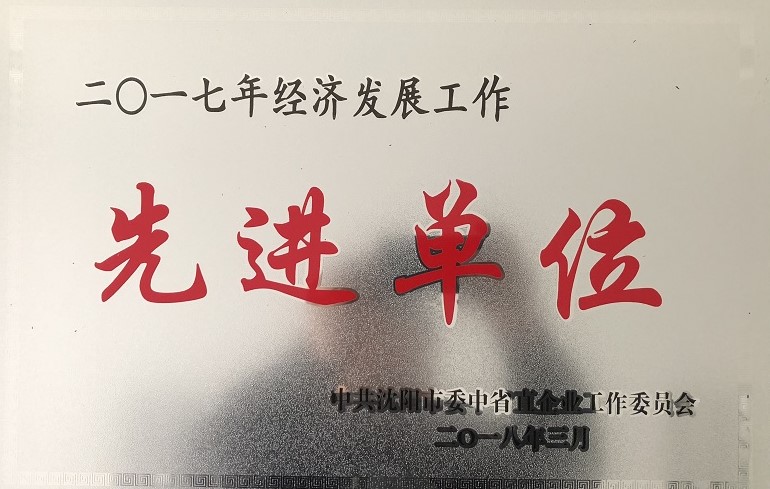 二〇一七年经济发展工作
先进单位
中共沈阳市委中省直企业工作委员会
二〇一八年三月